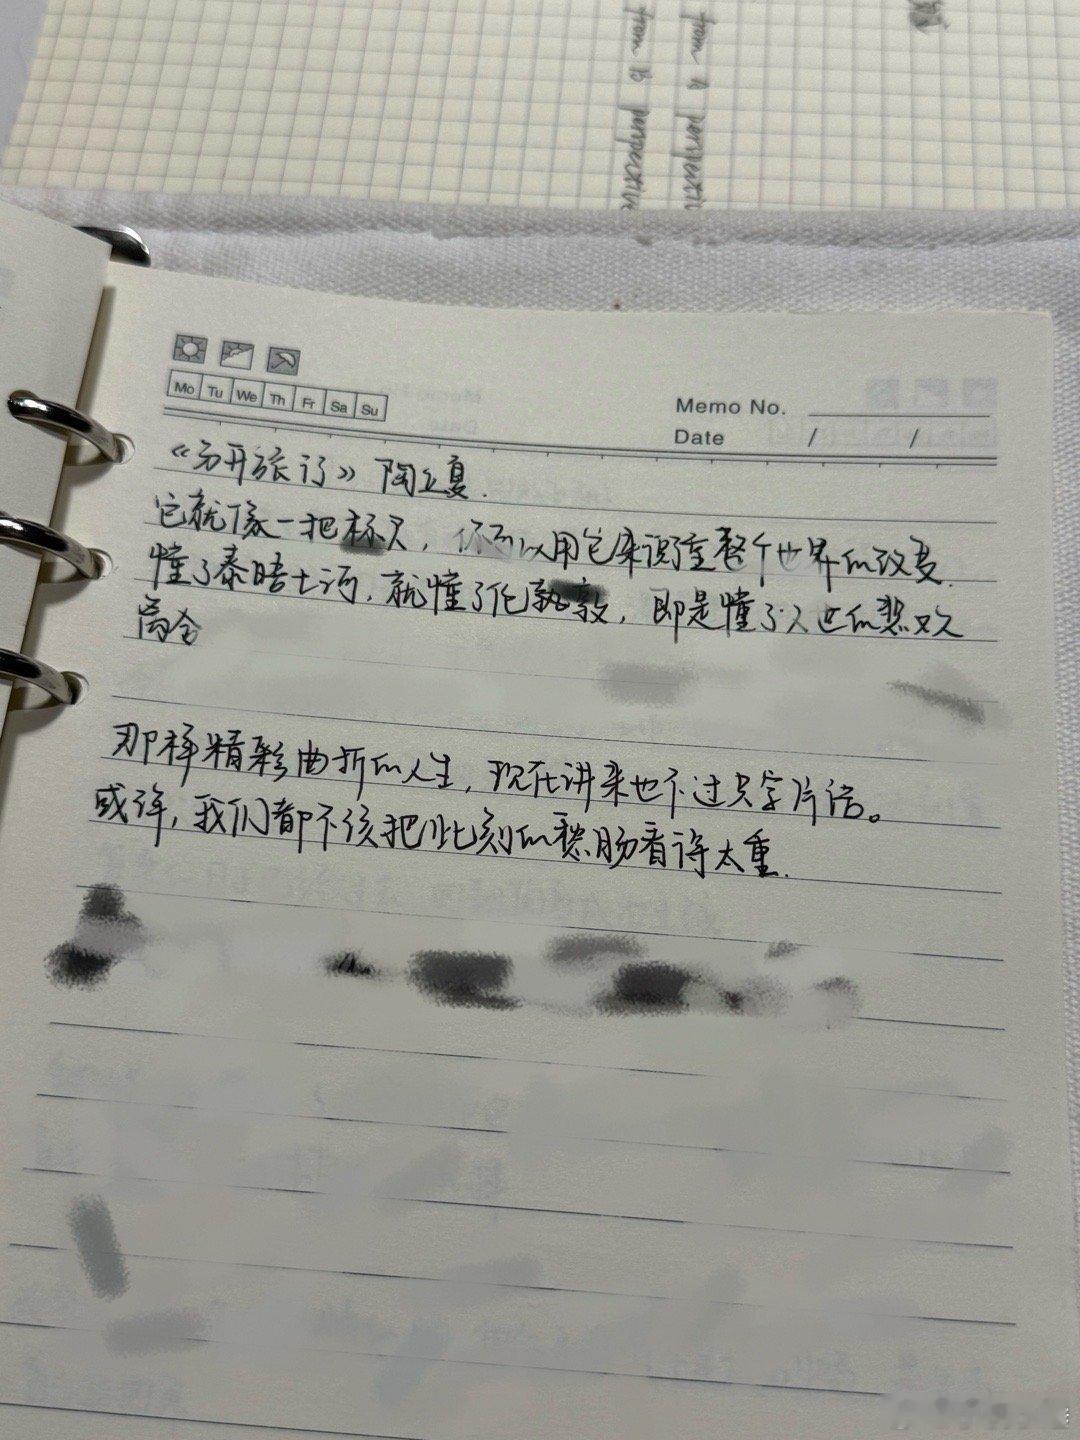 from A perspective
from B perspective
Mo Tu We Th Fr Sa Su
Memo No.
Date / /
《分开旅行》 陶立夏.
它就像一把标尺，你可以用它来测量整个世界的改变.
懂了泰晤士河，就懂了伦敦，即是懂了人世的悲欢
离合
那样精彩曲折的人生，现在讲来也不过只字片语。
或许，我们都不该把此刻的愁肠看得太重.